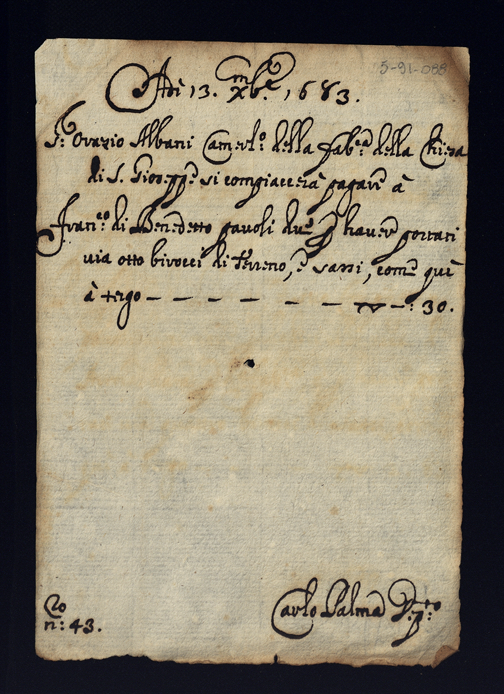 5-91-088
Adi 13. Xbre 1683.
Sr. Orazio Albani Camerlo. della fabca. della Chiesa
di S. Gioseppe si compiaccerà pagare à
Franco. di Benedetto pavoli due p haver portati
via otto birocci di terreno, e sassi, come quì
à tergo — — — — — — — : 30.
Carlo Palma
no
n: 43.